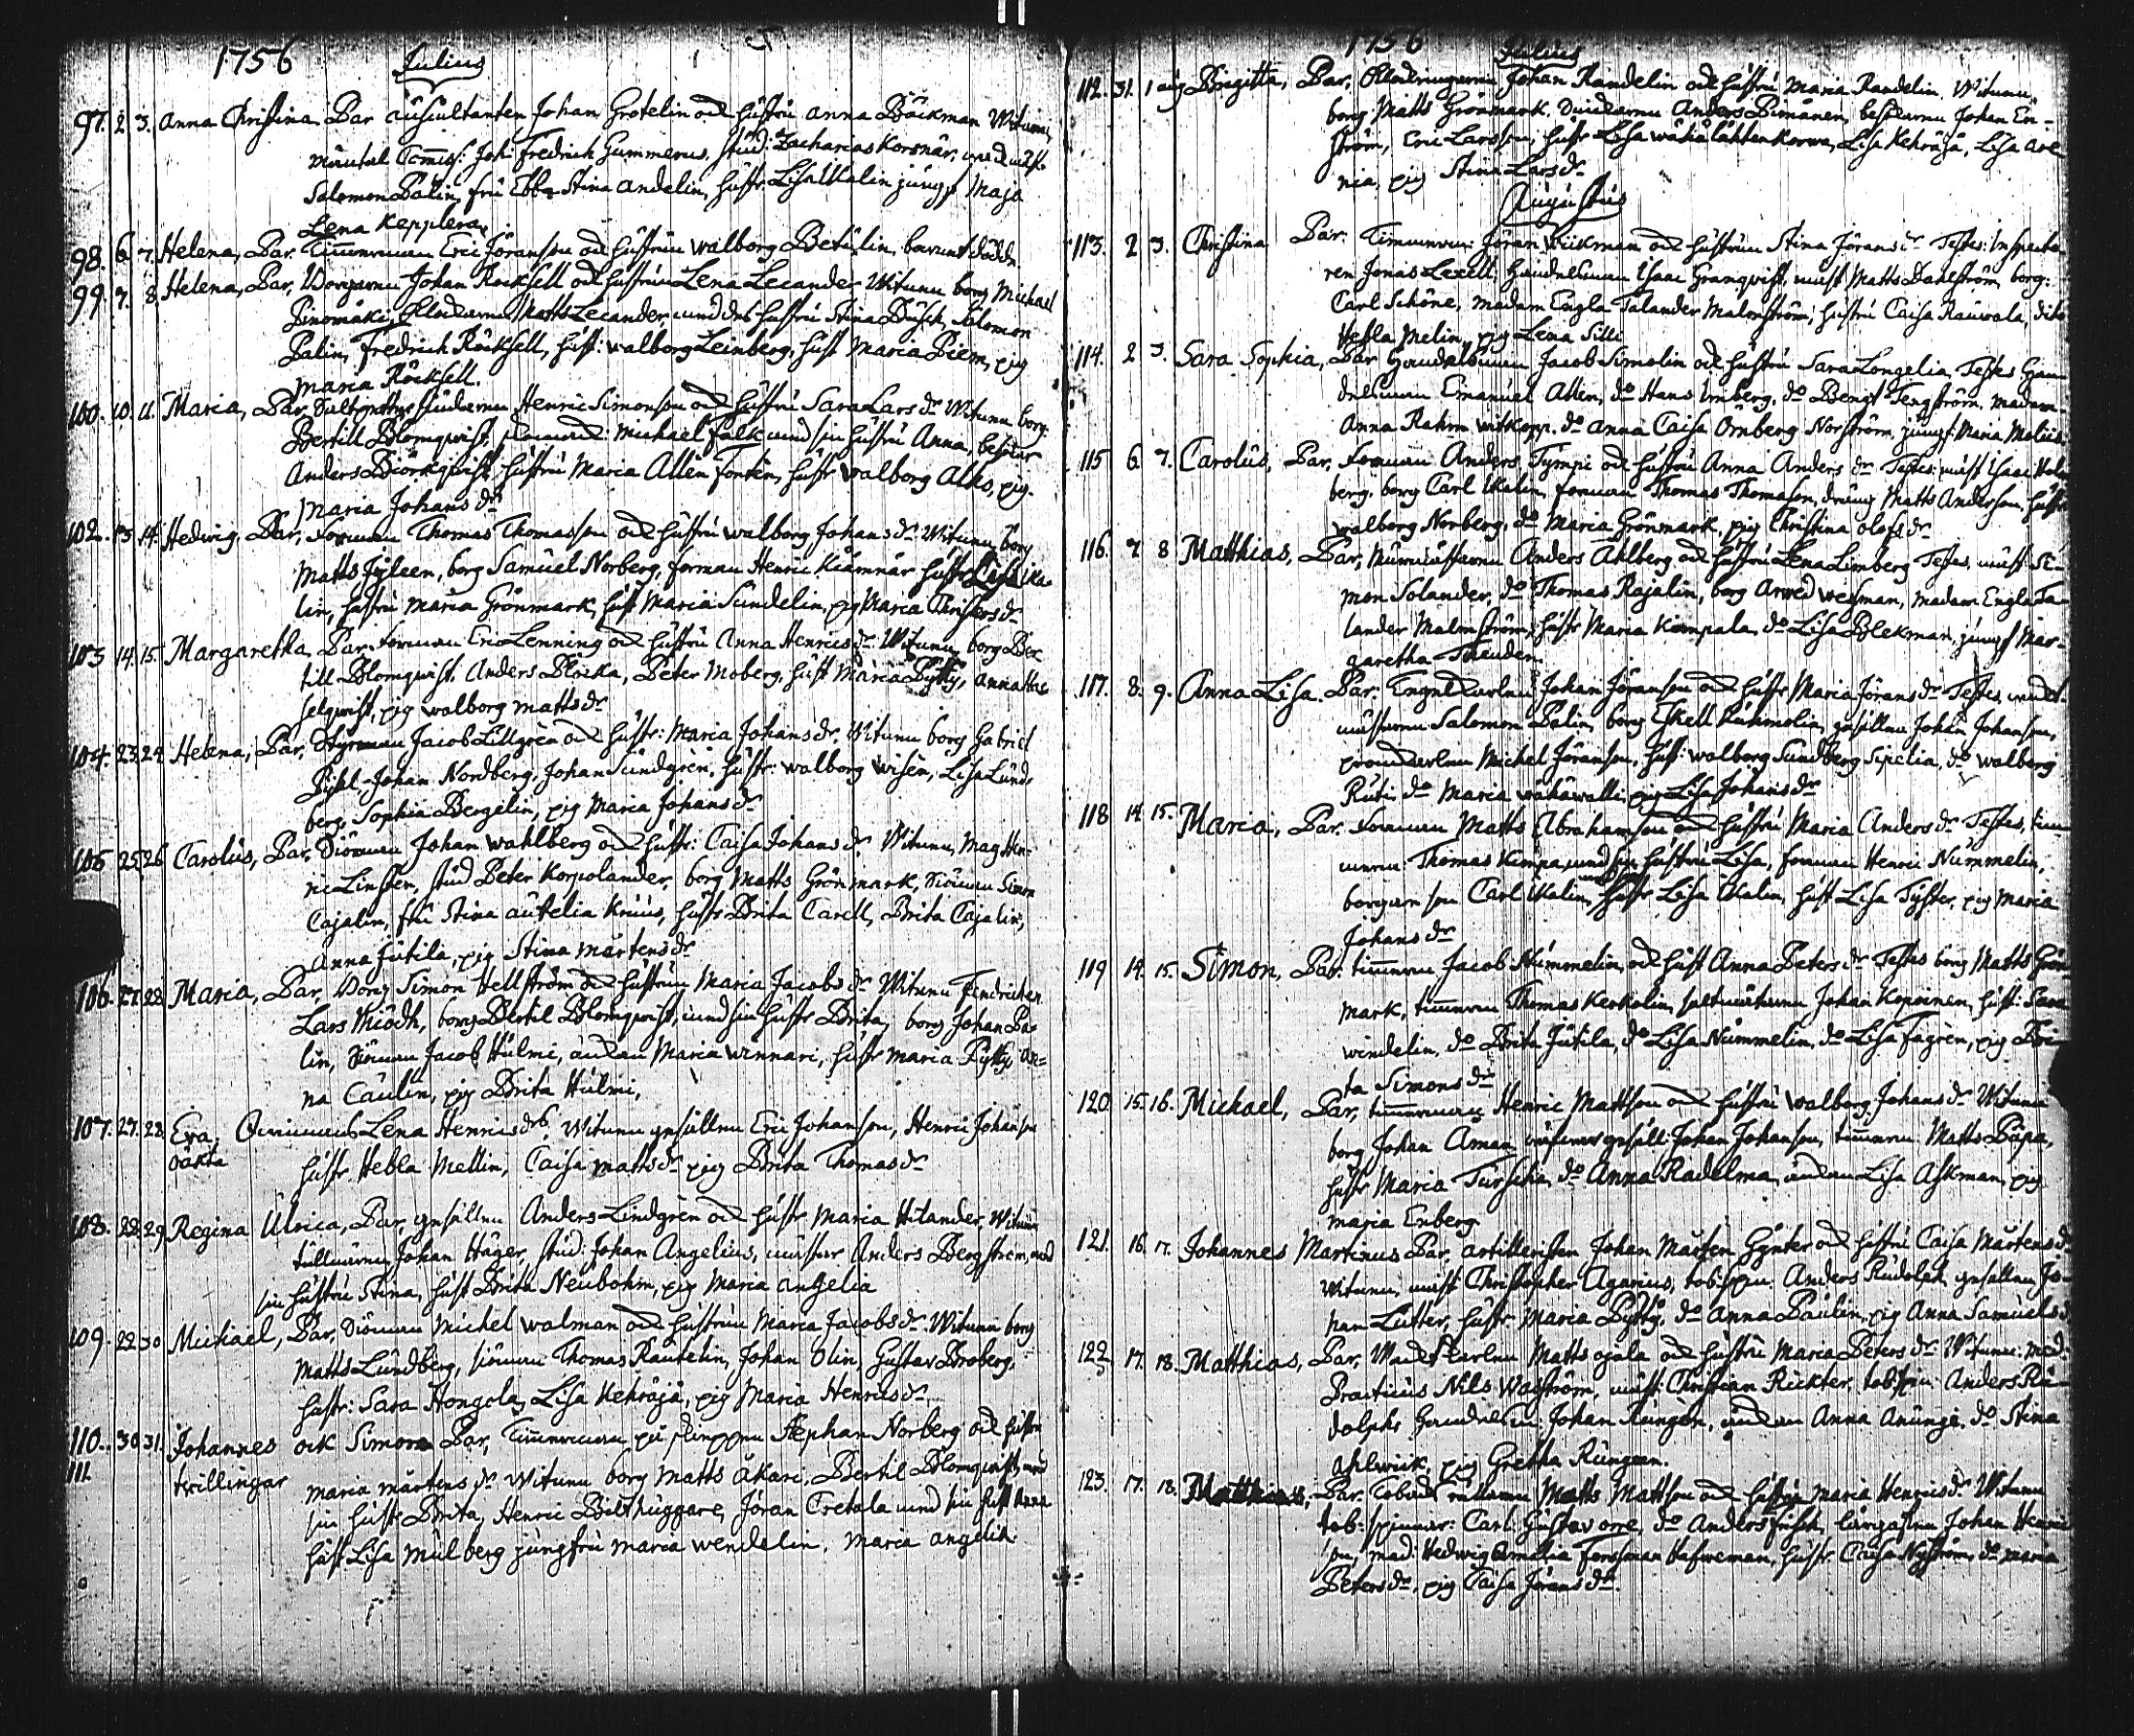 1756 Julius
97. 2. 3. Anna Christina Par auscultanten Johan Grotelin och hustru Anna Bäckman Witnen,
mantal Com̄iss: Joh: Fredrich Gummerus, stud: Zacharias Korsnär,
Salomon Palin, fru Ebba Stina Andelin, hustr. Lisa Ukalin jungf Maja
Lena Keppler.
98. 6. 7. Helena, Par. Tim̄erman Eric Jöranson och hustrun Walborg Betulin, barnet dödde.
99. 7. 8. Helena, Par, Borgaren Johan Röcksell och hustrun Lena Lecander Witnen borg Michael
Pinomäki, Matts Lecander med des hustru Stina Busch, Salomon
Palin, Fredrich Röcksell, hust: Walborg Leinberg, hust Maria Piem, pig
Maria Röcksell.
100. 10. 11. Maria, Par, Henric Simonson och hustru Sara Lars dr Witnen borg.
Bertill Blomqwist, Michael Falk med sin hustru Anna, besökar
Anders Biörkqwist, hustru Maria Allen Fortén, hustr Walborg Alho, pig.
Maria Johans dr
102. 13. 14. Hedwig, Par, Forman Thomas Thomasson och hustru Walborg Johans dr. Witnen, borg
Matts Jyleen, borg Samuel Norberg, forman Henric Kiämnär hustr Lisa Uka-
lin, hustru Maria Grönmark, hust Maria Sundelin, pig Maria Christers dr
103 14. 15. Margaretha, Par. forman Eric Lenning och hustru Anna Henrics dr Witnen, borg Ber
till Blomqwist, Anders Plöcka, Peter Moberg, hust Maria Pytty, Anna Has
selqwist, pig Walborg Matts dr
104. 23. 24 Helena, Par, Styrman Jacob Lillgrén och hustr: Maria Johans dr, Witnen borg Gabriel
Pihl, Johan Nordberg, Johan Sundgrén, hustr: Walborg Wisén, Lisa Lund-
berg, Sophia Bergelin, pig Maria Johans dr
105 25. 26 Carolus, Par, Siöman Johan Wahlberg och hustr: Caisa Johans dr Witnen, Mag Hen-
ric Linsten, stud Peter Korpolander, borg Matts Grönmark, Siöman Simon
Cajalen, fru Stina Autelia Kruus, hustr Brita Carell, Brita Cajalin,
Anna Jutila, pig Stina Mårtens dr
106. 27. 28. Maria, Par, Borg Simon Hellström och hustrun Maria Jacobs dr Witnen Fendricken
Lars Thiödh, borg Bertil Blomqwist, med sin hustr Brita, borg Johan Pa-
lin, Siöman Jacob Hulmi, änckan Maria Winnari, hustr Maria Pytty, An-
na Caulin, pig Brita Hulmi,
107. 27. 28. Eva, Qwinnans Lena Henrics drs, Witnen gesällen Eric Johanson, Henric Johanson
oäkta hustr Hebla Mellin, Caisa Matts dr pig Brita Thomas dr
108. 28. 29 Regina Ulrica, Par, gesällen Anders Lindgrén och hustr Maria Hilander Witnen
Johan Häger, stud: Johan Angelius, mästar Anders Bergstrem, med
sin hustru Stina, hust Brita Neubohm, pig Maria Angelia
109. 22. 30 Michael, Par, Siöman Michel Walman och hustrun Maria Jacobs dr. Witnen borg
Matts Lundberg, siöman Thomas Rautelin, Johan Olin, Gustav Broberg,
hustr: Sara Hongola, Lisa Kehräjä, pig Maria Henrics dr
110. 30 31. Johannes ock Simon Par, Tim̄erman på Skeppen Stephan Norberg och hustru
111 twillingar Maria Mårtens dr Witnen borg Matts Äkari, Bertil Blomqwist, med
sin hustr Brita, Henric Bildthuggare, Jöran Cretala med sin hust Anna
hust Lisa Mulberg jungfru Maria Wendelin, Maria Angelia
1756 Julius
112. 31. 1 aug Brigitta, Par, Johan Randelin och hustru Maria Randelin. Witnen,
borg Matts Grönmark, Anders Pimänen, Johan En-
ström, Eric Larsson, hustr Lisa Wähälähtenkorwa, Lisa Kehräjä, Lisa Are
nia, pig Stina Lars dr
Augustus
113. 2 3. Christina Par: Tim̄erman: Jöran Wickman och hustrun Stina Jörans dr Testes: Inspecto-
ren Jonas Lexell, handelsman Isaac Granqwist, mäst Matts Dahlström, borg:
Carl Schöne, Madam Engla Talander Malmström, hustru Caisa Rauwala, dito
Hebla Melin, pig Lena Silli
114. 2 3. Sara Sophia, Par Handelsman Jacob Simolin och hustru Sara Longelia, Testes Han
delsman Emanuel Allen, do Hans Imberg, do Bengt Tengström, Madam
Anna Rahm Witkopp. do Anna Caisa Örnberg Norström, jungf: Maria Molius
115 6 7. Carolus, Par, Forman Anders Tympi och hustru Anna Anders dr Testes: mäst Isaac Holm
berg, borg Carl Ukalin, forman Thomas Thomason, dräng Matts Anderson, hustr
Walborg Norberg, do Maria Grönmark, pig Christina Olofs dr
116. 7 8 Matthias, Par, Anders Ahlberg och hustru Lena Limberg Testes, mäst Si-
mon Solander, do Thomas Rajalin, borg Arwed Wessman, Madam Engla Ta
lander Malmström, hustr Maria Kampala, do Lisa Blekman, jungf Mar-
garetha Theuden
117. 8. 9. Anna Lisa. Par: Johan Jöranson och hustr Maria Jörans dr. Testes,
Salomon Palin, borg Eskell Ruhmolin, gesällen Johan Johanson,
Michel Jöranson, hust: Walborg Sundberg Sipelia, do Walborg
Ruti do Maria Wähäwalli pig Lisa Johans dr
118 14 15. Maria, Par. Forman Matts Abrahamson och hustru Maria Anders dr Testes, tim
merm: Thomas Kimpa, med sin hustru Lisa, forman Henric Nummelin,
borgaren Carl Ukalin, med hustr Lisa Ukalin, hust Lisa Tyster, pig Maria
Johans dr
119 14. 15. Simon, Par. tim̄erman Jacob Nummelin, och hust Anna Peters dr Testes borg Matts Grön
mark, tim̄erman Thomas Kerkolin, Johan Kopoinen, hust: Sara
Windelin, do Brita Jutila, do Lisa Nummelin, do Lisa Fagrén, pig Bri-
ta Simons dr
120. 15. 16. Michael, Par, tim̄erman Henric Mattson och hustru Walborg Johans dr. Witnen
borg Johan Åman gesäll: Johan Johanson, tim̄erm: Matts Papa,
hustr Maria Turscha, do Anna Radelma, änckan Lisa Askman, pig
Maria Enberg.
121. 16. 17. Johannes Martinus Par, artilleristen Johan Mårten Gynter och hustru Caisa Mårtens dr
Witnen, mäst Christopher Agarius, tob: spin: Anders Rudolph, gesällen Jo-
han Lutter, hustr Maria Pytty, do Anna Paulin, pig Anna Samuels d
122 17. 18. Matthias, Par, Matts Ojala och hustru Maria Peters dr Witnen: med:
Practicus Nils Wagström, mäst: Christian Rickter, tob: spin: Anders Ru-
dolph, Handelsm Johan Rungén, änckan Anna Anunge, do Stina
Ahlwick, pig Gretha Rungeen.
123. 17. 18. Matthias, Par. Matts Mattson och hustru Maria Henrics dr Witnen
tob: spinnar: Carl Gustav Orre, do Anders Fusch, Johan Henric
son, Mad: Hedwig Amelia Forssman Hafweman, hustr Caisa Nyström, do Maria
Peters dr, pig Caisa Jörans dr.